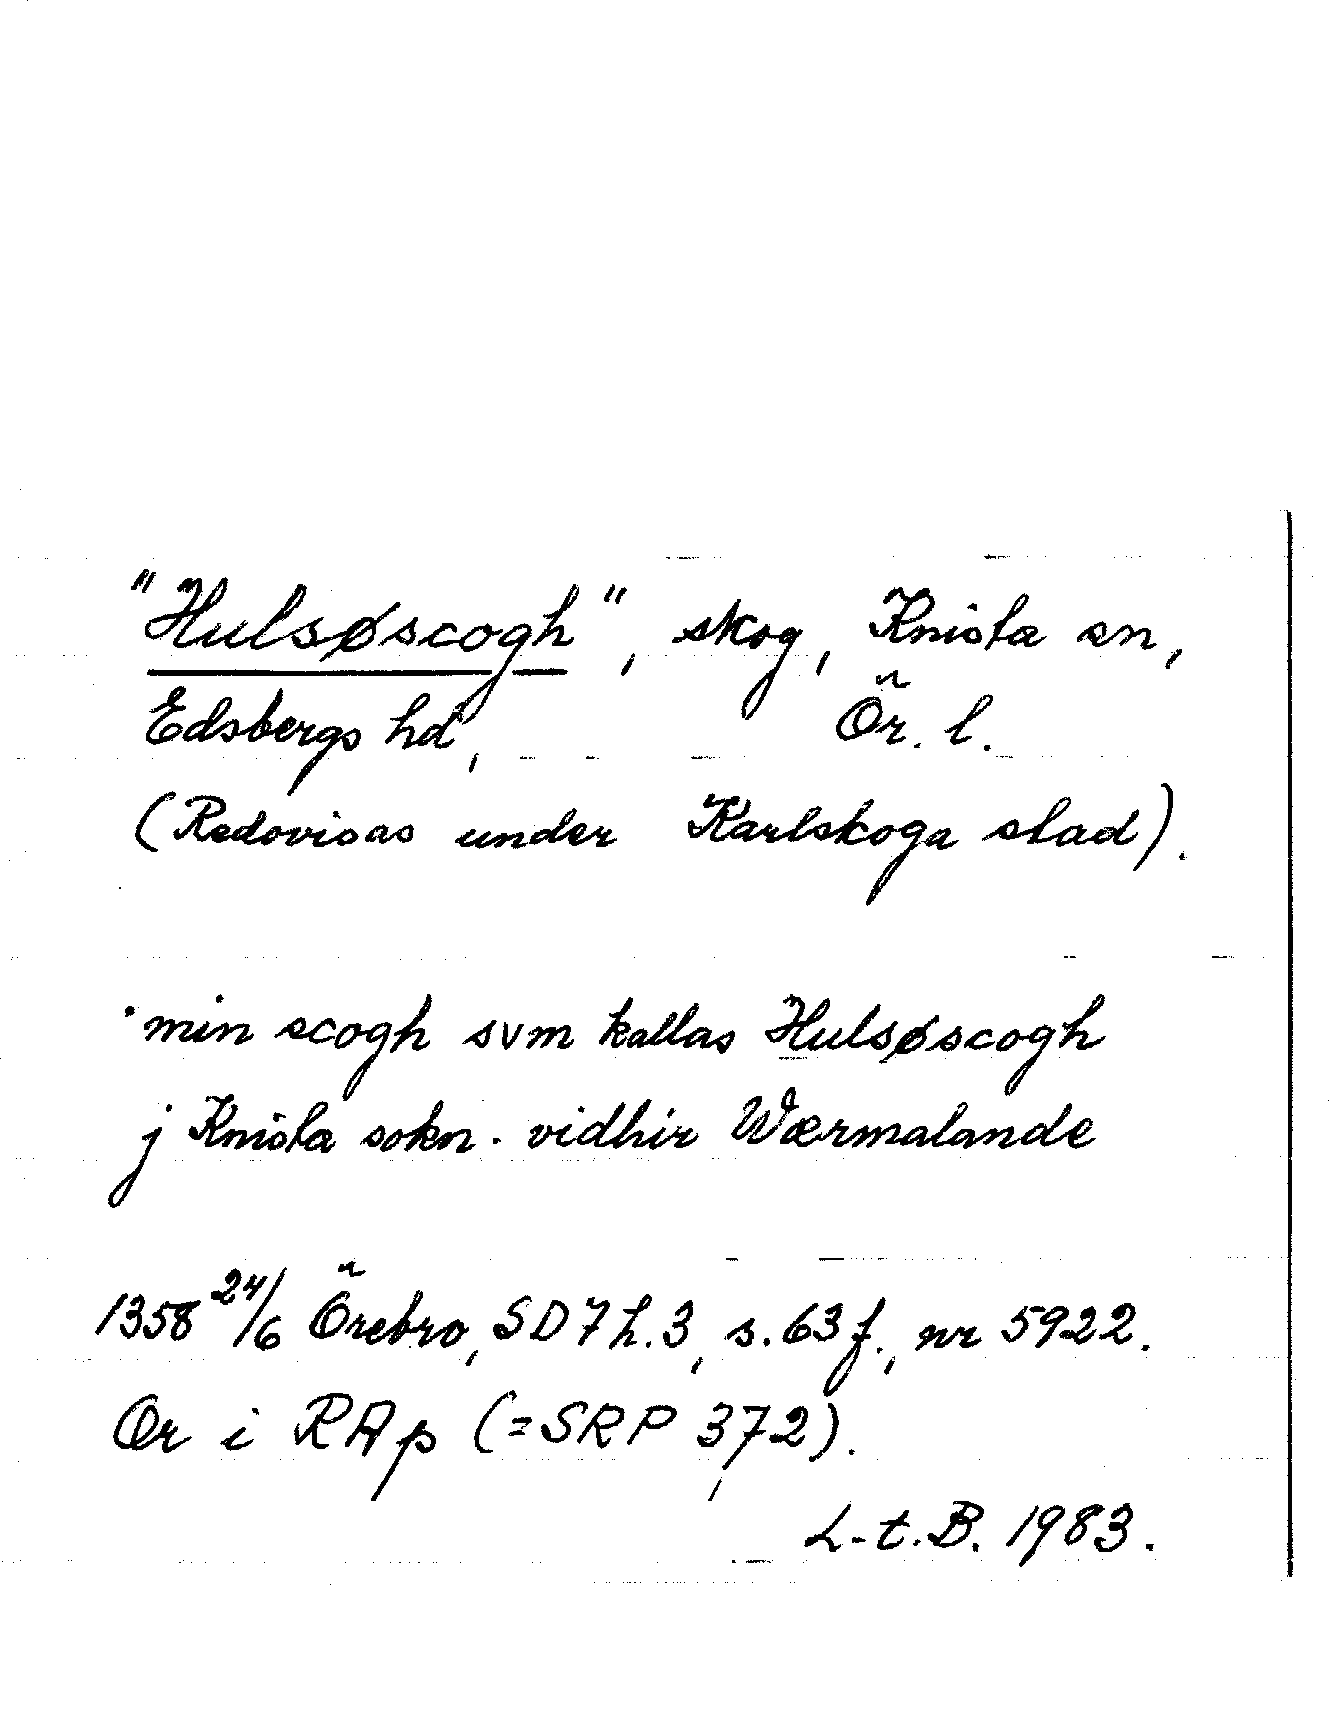 "Hulsøscogh", skog, Knista sn,
Edsbergs hd, Ör. l.
(Redovisas under Karlskoga stad).
·min scogh svm kallas Hulsøscogh
j Knista sokn. vidhir Wærmalande
1358 24/6 Örebro, SD 7 h. 3, s. 63 f., nr 5922.
Or i RAp (=SRP 372).
L-t.B. 1983.